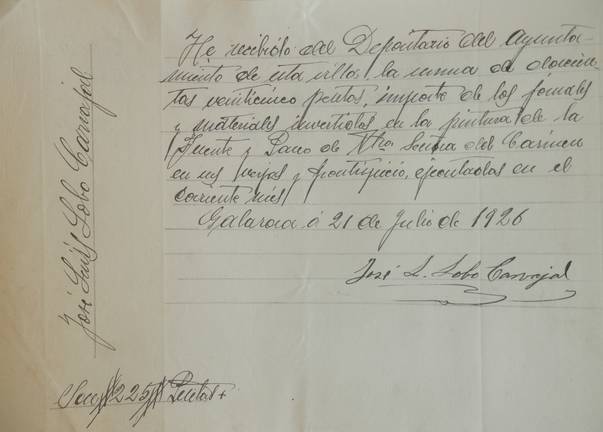 José Luis Lobo Carvajal
He recibido del Depositario del Ayunta-
miento de esta villa, la suma de doscien-
tas veinticinco pesetas, importe de los jornales
y materiales invertidos en la pintura de la
Fuente y Paseo de Ntra. Señora del Carmen
en sus verjas y frontispicio, ejecutadas en el
corriente mes
Galaroza á 21 de Julio de 1926
José L. Lobo Carvajal
Son #225# Pesetas+